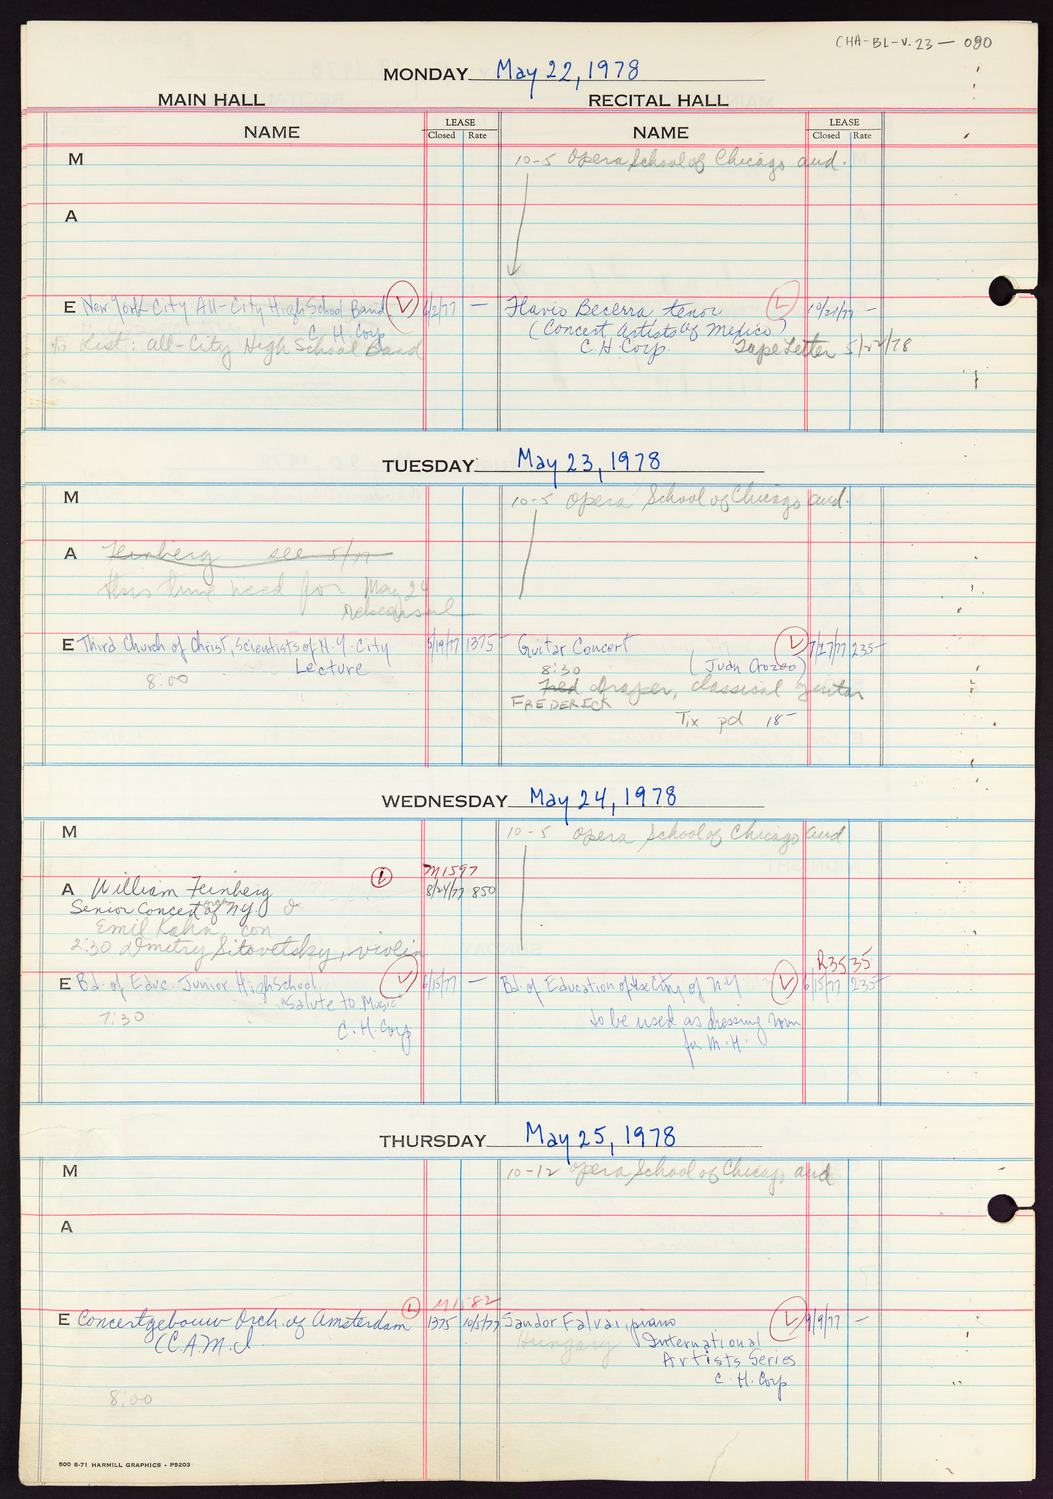 CHA-BL-V.23 — 090
MONDAY May 22, 1978
MAIN HALL RECITAL HALL
NAME LEASE Closed Rate NAME LEASE Closed Rate
M 10-5 Opera School of Chicago aud.
A
E New York City All-City High School Band L 6/2/77 — Flavio Becerra tenor L 10/21/77 —
C. H. Corp (Concert Artists of Mexico)
List: All-City High School Band C.H. Corp. Tape Letter 5/22/78
TUESDAY May 23, 1978
M 10-5 Opera School of Chicago aud.
A Feinberg see 5/17
this time need for May 24
rehearsal
E Third Church of Christ, Scientists of N.Y. City 5/19/77 1375 Guitar Concert L 7/27/77 235—
Lecture (Juan Orozco)
8:00 8:30
Fred Draper, classical guitar
FREDERICK
Tix pd 18—
WEDNESDAY May 24, 1978
M 10-5 Opera School of Chicago aud
M1597
A William Feinberg L 8/24/77 850
Senior Concert Orch of N.Y.
Emil Kahn, con
2:30 Dmitry Sitovetsky, violin
R3535
E Bd. of Educ. Junior High School L 6/15/77 — Bd. of Education of the City of N.Y L 6/15/77 235—
"Salute to Music" to be used as dressing room
7:30 C. H. Corp for M.H.
THURSDAY May 25, 1978
M 10-12 Opera School of Chicago aud
A
M1582
E Concertgebouw Orch. of Amsterdam L 1375 10/5/77 Sandor Falvai, piano L 9/9/77 —
(C.A.M.I Hungary International
Artists Series
C. H. Corp
8:00
500 8-71 HARMILL GRAPHICS - P5203